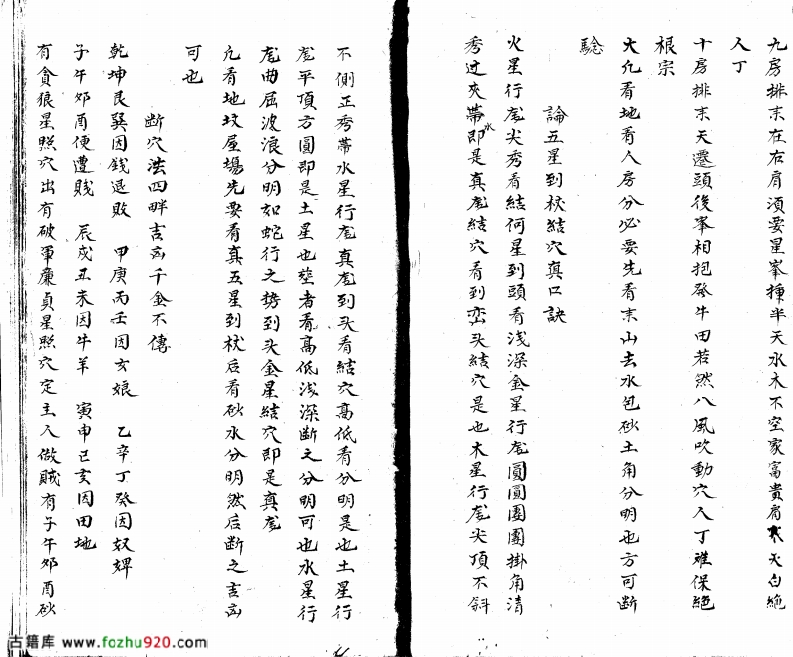 九房排來在右肩須要星峯揷半天水木不空家富貴肩 天白絶
人丁
十房排來天遷頭後峯相抱發牛田若然八風吹動穴人丁难保絶
根宗
大凢看地看人房分必要先看来山去水包砂土角分明也方可断
騐
論五星到杖結穴真口訣
火星行龙尖秀看結何星到頭看浅深金星行龙圓圓團團掛角清
秀过夾帶水即是真龙結穴看到峦头結穴是也木星行龙尖頂不斜
不側正秀帶水星行龙真龙到头看結穴高低看分明是也土星行
龙平頂方圓即是土星也葬者看高低浅深断之分明可也水星行
龙曲屈波浪分明如蛇行之势到头金星結穴即是真龙
凢看地坟屋場先要看真五星到杖后看砂水分明然后断之吉凶
可也
断穴法四畔吉凶千金不傳
乾坤艮巽因錢退敗 甲庚丙壬因女娘 乙辛丁癸因奴婢
子午夘酉便遭賤 辰戍丑未因牛羊 寅申巳亥因田地
有貪狼星照穴出有破軍廉貞星照穴定主人做賊有子午夘酉砂
古籍库 www.fozhu920.com